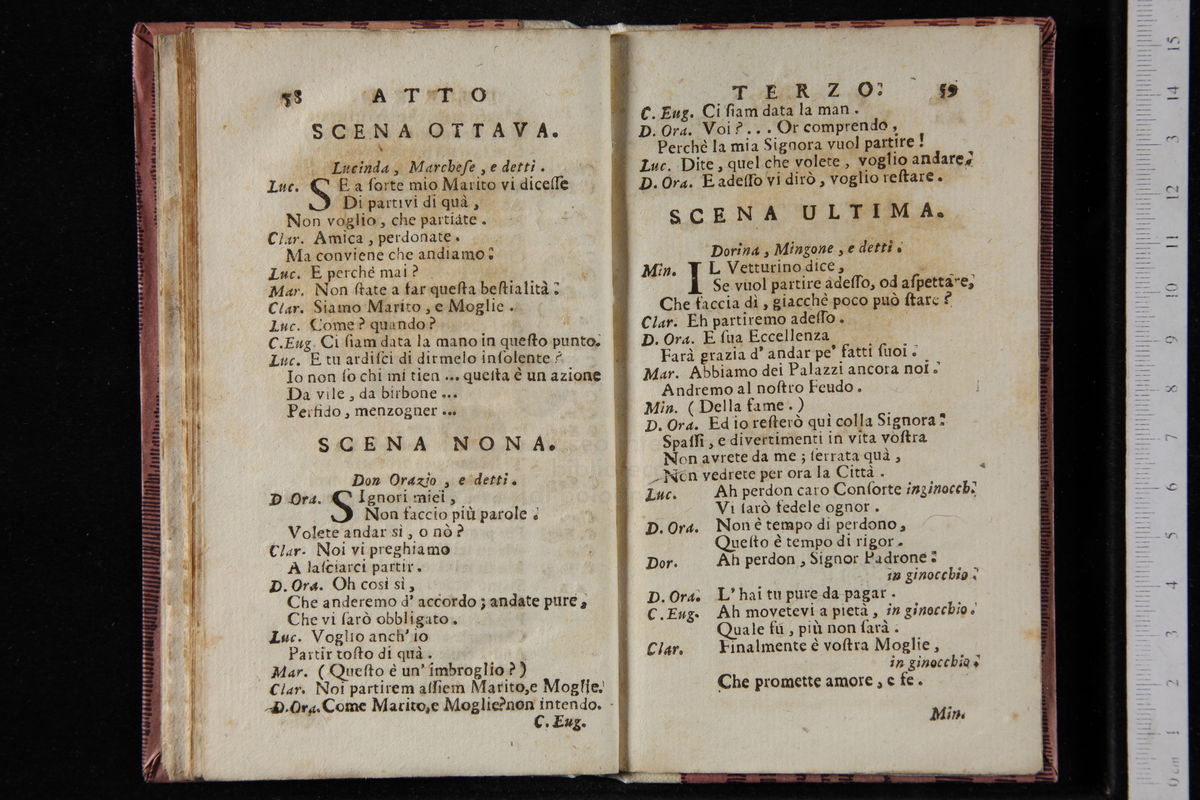 58 ATTO
SCENA OTTAVA.
Lucinda, Marcheſe, e detti.
Luc. SE a ſorte mio Marito vi diceſſe
Di partivi di quà,
Non voglio, che partiate.
Clar. Amica, perdonate.
Ma conviene che andiamo:
Luc. E perchè mai?
Mar. Non ſtate a far queſta beſtialità:
Clar. Siamo Marito, e Moglie.
Luc. Come? quando?
C.Eug. Ci ſiam data la mano in queſto punto.
Luc. E tu ardiſci di dirmelo inſolente?
Io non ſo chi mi tien ... queſta è un azione
Da vile, da birbone ...
Perfido, menzogner ...
SCENA NONA.
Don Orazio, e detti.
D Ora. SIgnori miei,
Non faccio più parole.
Volete andar sì, o nò?
Clar. Noi vi preghiamo
A laſciarci partir.
D. Ora. Oh così sì,
Che anderemo d'accordo; andate pure,
Che vi ſarò obbligato.
Luc. Voglio anch'io
Partir toſto di quà.
Mar. (Queſto è un'imbroglio?)
Clar. Noi partirem aſſiem Marito,e Moglie.
D.Ora. Come Marito,e Moglie?non intendo.
C. Eug.
TERZO: 59
C. Eug. Ci ſiam data la man.
D. Ora. Voi? ... Or comprendo,
Perchè la mia Signora vuol partire!
Luc. Dite, quel che volete, voglio andare.
D. Ora. E adeſſo vi dirò, voglio reſtare.
SCENA ULTIMA.
Dorina, Mingone, e detti.
Min. IL Vetturino dice,
Se vuol partire adeſſo, od aſpettare,
Che faccia dì, giacchè poco può ſtare?
Clar. Eh partiremo adeſſo.
D. Ora. E ſua Eccellenza
Farà grazia d'andar pe' fatti ſuoi.
Mar. Abbiamo dei Palazzi ancora noi.
Andremo al noſtro Feudo.
Min. (Della fame.)
D. Ora. Ed io reſterò quì colla Signora:
Spaſſi, e divertimenti in vita voſtra
Non avrete da me; ſerrata quà,
Non vedrete per ora la Città.
Luc. Ah perdon caro Conſorte inginocch.
Vi ſarò fedele ognor.
D. Ora. Non è tempo di perdono,
Queſto è tempo di rigor.
Dor. Ah perdon, Signor Padrone:
in ginocchio.
D. Ora. L'hai tu pure da pagar.
C. Eug. Ah movetevi a pietà, in ginocchio.
Quale fù, più non ſarà.
Clar. Finalmente è voſtra Moglie,
in ginocchio.
Che promette amore, e fe.
Min.
0 cm 1 2 3 4 5 6 7 8 9 10 11 12 13 14 15